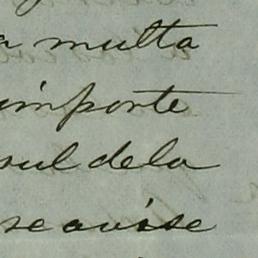 a multa
importe
sul de la
se avise